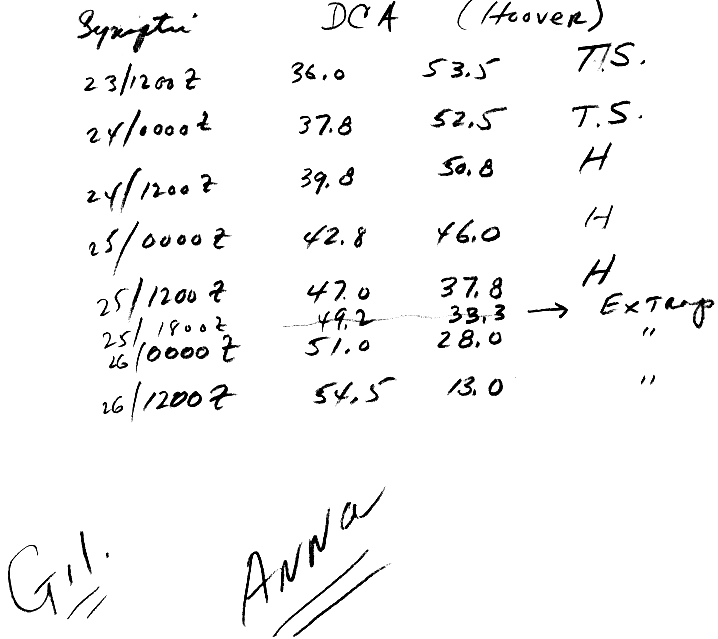 Synoptic DCA (Hoover)
23/1200Z 36.0 53.5 T.S.
24/0000Z 37.8 52.5 T.S.
24/1200Z 39.8 50.8 H
25/0000Z 42.8 46.0 H
25/1200Z 47.0 37.8 H
25/1800Z 49.2 33.3 → Extrap
26/0000Z 51.0 28.0 "
26/1200Z 54.5 13.0 "
Gil.
ANNA